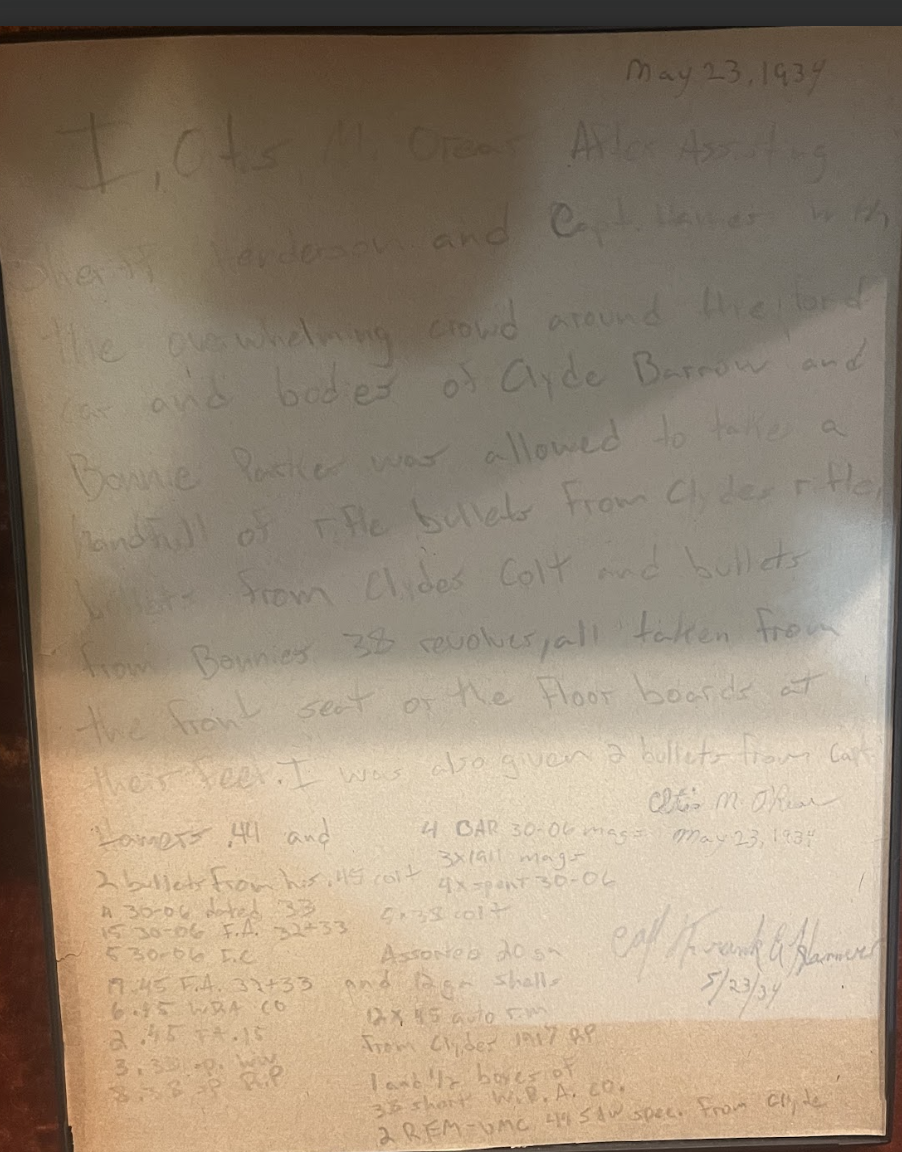 May 23, 1934
I, Otis M. Orear After Assisting
Sheriff Henderson and Capt. Hamer with
the overwhelming crowd around the ford
car and bodies of Clyde Barrow and
Bonnie Parker was allowed to take a
handfull of rifle bullets from Clydes rifle,
bullets from Clydes Colt and bullets
from Bonnies 38 revolver, all taken from
the front seat or the Floor boards at
their feet. I was also given 2 bullets from Capt
Hamers .44 and
2 bullets from his .45 colt
Otis M. O'Rear
May 23, 1934
30-06 dated 33
15 30-06 F.A. 32+33
5 30-06
.45 F.A. 32+33
6 .45 WRA CO
2 .45 F.A. 15
3 .38 sp. WW
8 .38 sp R.P
4 BAR 30-06 mags
3x1911 mags
4x spent 30-06
5x38 colt
Assorted 20 ga
and 12 ga shells
12x 45 auto rim
from Clydes 1917 RP
1 and 1/2 boxes of
38 short W.R.A. CO.
2 REM-UMC 44 S&W spec. from Clyde
Frank A Hamer
5/23/34